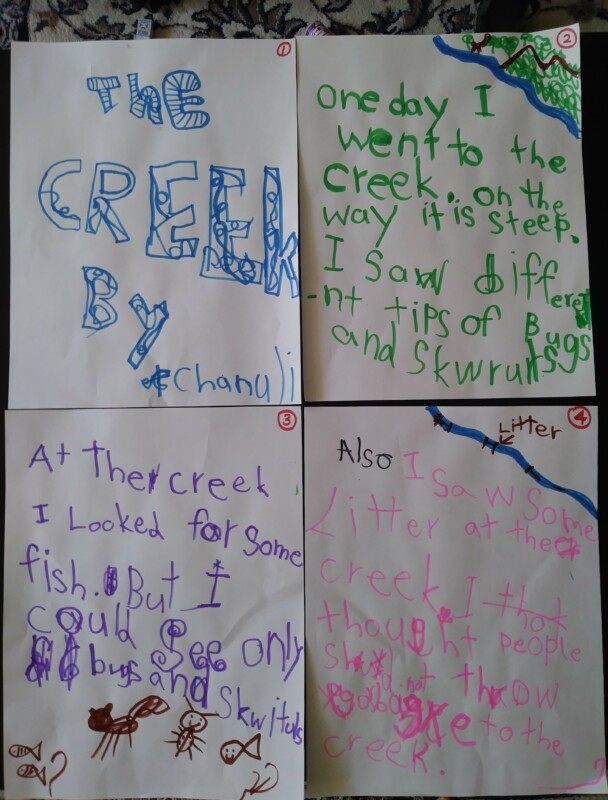 1
THE
CREEK
By
Chanuli
2
One day I
went to the
creek. on the
way it is steep.
I saw differe
-nt tips of Bugs
and Skwruls
3
At the creek
I Looked for some
fish. But I
could see only
bugs and
Skwituls
4
Litter
Also I
saw some
Litter at the
creek. I
thought people
not throw
to the
creek.